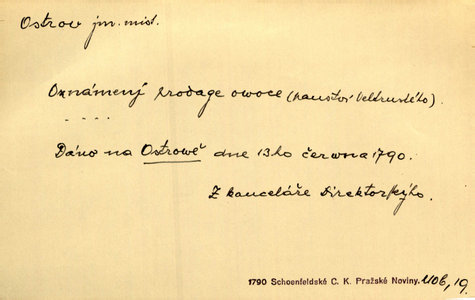 Ostrov jm. míst.
Oznámený prodage owoce (panství Veltruského).
. . . .
Dáno na Ostrowě dne 13ho čerwna 1790.
Z kanceláře Direktorskýho.
1790 Schoenfeldské C. K. Pražské Noviny. 406, 19.